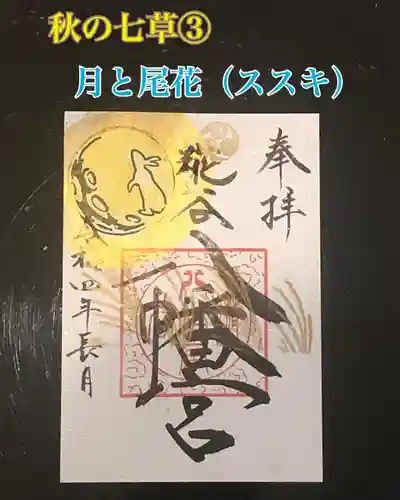 秋の七草③
月と尾花（ススキ）
奉拝
糀谷
八幡宮
和四年長月